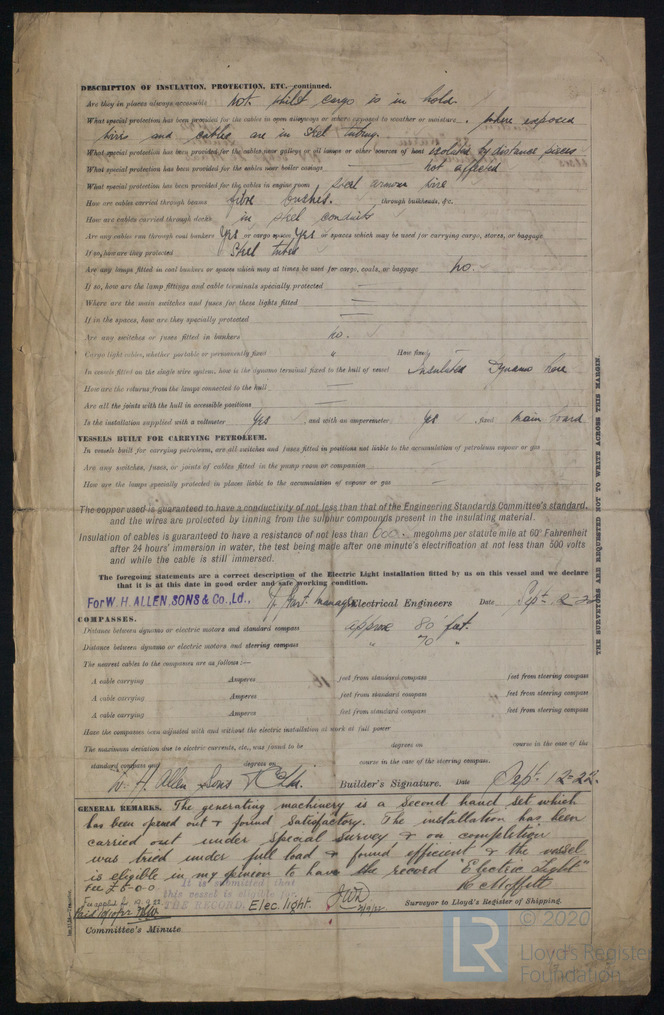 DESCRIPTION OF INSULATION, PROTECTION, ETC.—continued.
Are they in places always accessible Not whilst cargo is in hold.
What special protection has been provided for the cables in open alleyways or where exposed to weather or moisture where exposed
and cables are in steel tubing.
What special protection has been provided for the cables near galleys or oil lamps or other sources of heat isolated by distance pieces
What special protection has been provided for the cables near boiler casings not affected
What special protection has been provided for the cables in engine room steel armour wire
How are cables carried through beams fibre bushes. through bulkheads, &c.
How are cables carried through decks in steel conduits
Are any cables run through coal bunkers Yes or cargo spaces Yes or spaces which may be used for carrying cargo, stores, or baggage
If so, how are they protected Steel tubes
Are any lamps fitted in coal bunkers or spaces which may at times be used for cargo, coals, or baggage No.
If so, how are the lamp fittings and cable terminals specially protected —
Where are the main switches and fuses for these lights fitted —
If in the spaces, how are they specially protected —
Are any switches or fuses fitted in bunkers no.
Cargo light cables, whether portable or permanently fixed " How fixed
In vessels fitted on the single wire system, how is the dynamo terminal fixed to the hull of vessel Insulated Dynamo here
How are the returns from the lamps connected to the hull —
Are all the joints with the hull in accessible positions —
Is the installation supplied with a voltmeter Yes, and with an amperemeter Yes, fixed main board
VESSELS BUILT FOR CARRYING PETROLEUM.
In vessels built for carrying petroleum, are all switches and fuses fitted in positions not liable to the accumulation of petroleum vapour or gas
Are any switches, fuses, or joints of cables fitted in the pump room or companion
How are the lamps specially protected in places liable to the accumulation of vapour or gas —
The copper used is guaranteed to have a conductivity of not less than that of the Engineering Standards Committee's standard,
and the wires are protected by tinning from the sulphur compounds present in the insulating material.
Insulation of cables is guaranteed to have a resistance of not less than 600 megohms per statute mile at 60° Fahrenheit
after 24 hours' immersion in water, the test being made after one minute's electrification at not less than 500 volts
and while the cable is still immersed.
The foregoing statements are a correct description of the Electric Light installation fitted by us on this vessel and we declare
that it is at this date in good order and safe working condition.
For W. H. ALLEN, SONS & Co., Ld., manager Electrical Engineers Date Sept. 2-22
COMPASSES.
Distance between dynamo or electric motors and standard compass approx 80 feet.
Distance between dynamo or electric motors and steering compass " 70 "
The nearest cables to the compasses are as follows:—
A cable carrying Amperes feet from standard compass feet from steering compass
A cable carrying Amperes feet from standard compass feet from steering compass
A cable carrying Amperes feet from standard compass feet from steering compass
Have the compasses been adjusted with and without the electric installation at work at full power
The maximum deviation due to electric currents, etc., was found to be degrees on course in the case of the
standard compass and degrees on course in the case of the steering compass.
W. H. Allen Sons Builder's Signature. Date Sept. 2-22.
GENERAL REMARKS. The generating machinery is a second hand set which
has been opened out & found satisfactory. The installation has been
carried out under special survey & on completion
was tried under full load & found efficient & the vessel
is eligible in my opinion to have the record "Electric Light"
Fee £5-0-0
It is submitted that
this vessel is eligible for
THE RECORD. Elec. light.
Surveyor to Lloyd's Register of Shipping.
Committee's Minute
THE SURVEYORS ARE REQUESTED NOT TO WRITE ACROSS THIS MARGIN.
LR
© 2020
Lloyd's Register
Foundation